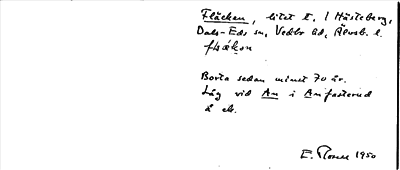 Fläcken, litet t. i Hästeberg,
Dals-Eds sn, Vedbo hd, Älvsb. l.
Borta sedan minst 70 år.
Låg vid An i Anfasterud
å ek.
E. 1950